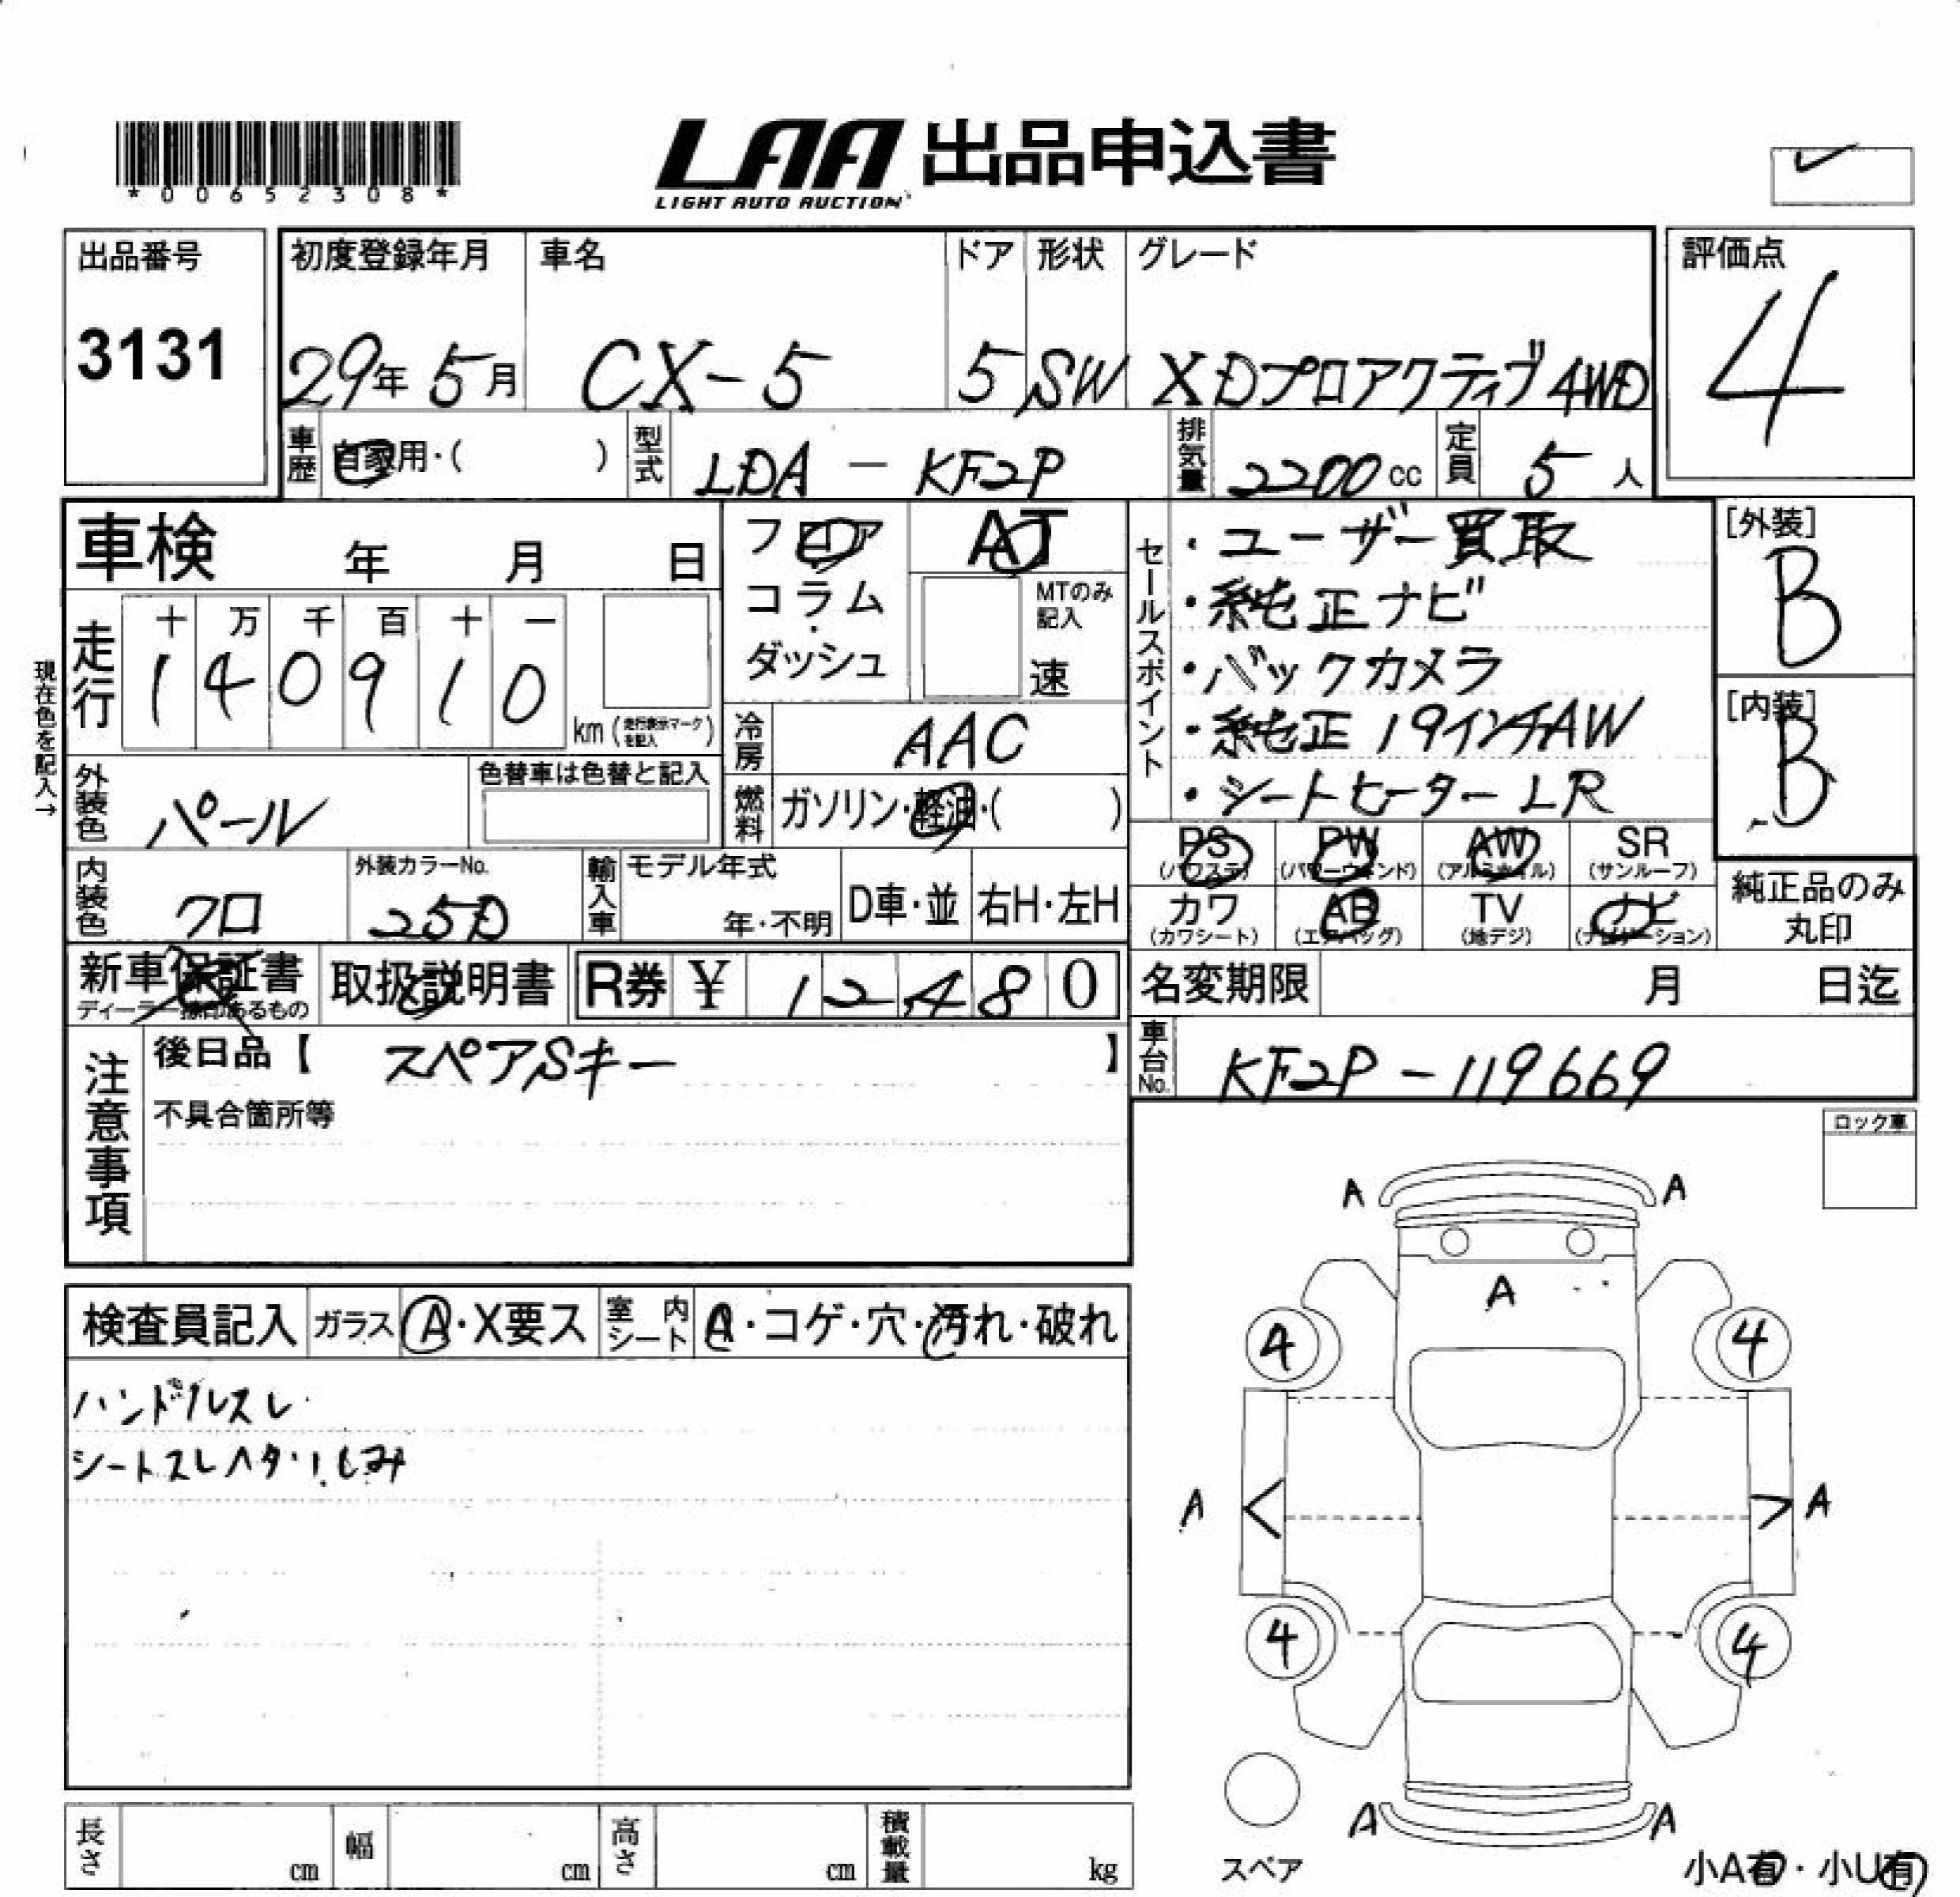 *00652308*
LAA 出品申込書
LIGHT AUTO AUCTION
出品番号
3131
初度登録年月
29年5月
車名
CX-5
ドア
5
形状
SW
グレード
XDプロアクティブ4WD
評価点
4
車歴 自家用・( )
型式 LDA-KF2P
排気量 2200cc
定員 5人
車検 年 月 日
フロア
コラム
・
ダッシュ
AT
MTのみ
記入
速
セールスポイント
・ユーザー買取
・純正ナビ
・バックカメラ
・純正19インチAW
・シートヒーターLR
[外装]
B
[内装]
B
現在色を記入→
走行
十 万 千 百 十 一
1 4 0 9 1 0
km(走行表示マークを記入)
冷房 AAC
燃料 ガソリン・軽油・( )
外装色 パール
色替車は色替と記入
内装色 クロ
外装カラーNo.
25D
輸入車
モデル年式
年・不明
D車・並
右H・左H
PS
(パワステ)
PW
(パワーウインド)
AW
(アルミホイル)
SR
(サンルーフ)
カワ
(カワシート)
AB
(エアバッグ)
TV
(地デジ)
ナビ
(ナビゲーション)
純正品のみ
丸印
新車保証書
ディーラー捺印あるもの
取扱説明書
R券 ¥ 12480
名変期限 月 日迄
注意事項
後日品【 スペアSキー 】
不具合箇所等
車台No. KF2P-119669
ロック車
検査員記入
ガラス A・X要ス
室内シート A・コゲ・穴・汚れ・破れ
ハンドルスレ
シートスレヘタリしみ
A A
A
4 4
A A
4 4
A A
スペア
小A有・小U有
長さ cm
幅 cm
高さ cm
積載量 kg